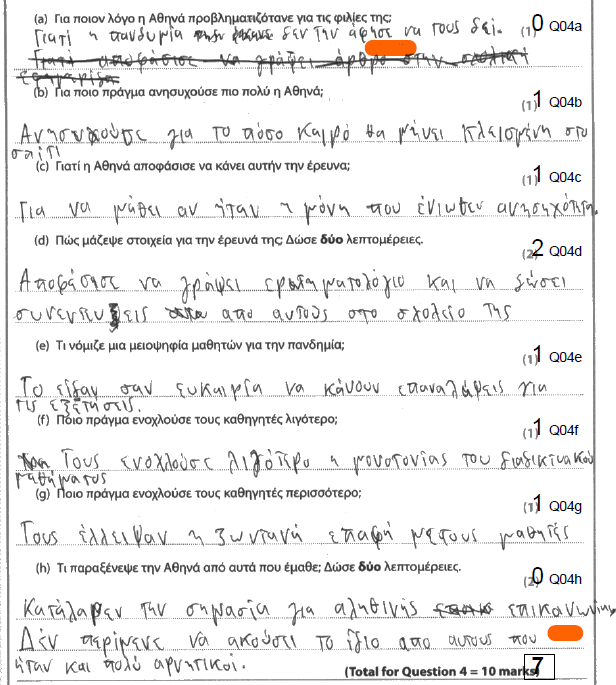 (a) Για ποιον λόγο η Αθηνά προβληματιζότανε για τις φιλίες της;
Γιατί η πανδυμία δεν την άφησε να τους δει. (1) 0 Q04a
Γιατί αποφάσισε να γράψει άρθρο στην σχολική
εφημερίδα
(b) Για ποιο πράγμα ανησυχούσε πιο πολύ η Αθηνά;
(1) 1 Q04b
Ανησυχούσε για το πόσο καιρό θα μήνει κλεισμένη στο
σπίτι
(c) Γιατί η Αθηνά αποφάσισε να κάνει αυτήν την έρευνα;
(1) 1 Q04c
Για να μάθει αν ήταν η μόνη που ένιωθεν ανησηχότητα.
(d) Πώς μάζεψε στοιχεία για την έρευνά της; Δώσε δύο λεπτομέρειες.
(2) 2 Q04d
Αποφάσησε να γράψει ερωτηματολόγιο και να δώσει
συνεντεύξεις από αυτούς στο σχολείο της
(e) Τι νόμιζε μια μειοψηφία μαθητών για την πανδημία;
(1) 1 Q04e
Το είδαν σαν ευκαιρία να κάνουν επαναλάψεις για
τις εξετήσεις.
(f) Ποιο πράγμα ενοχλούσε τους καθηγητές λιγότερο;
(1) 1 Q04f
Τους ενοχλούσε λιγότερο η μονοτονίας του διαδικτυακού
μαθήματος
(g) Ποιο πράγμα ενοχλούσε τους καθηγητές περισσότερο;
(1) 1 Q04g
Τους έλλειψαν η ζωντανή επαφή με τους μαθητές
(h) Τι παραξένεψε την Αθηνά από αυτά που έμαθε; Δώσε δύο λεπτομέρειες.
(2) 0 Q04h
Κατάλαβεν την σημασία για αληθινής επικανωνίην,
Δέν περίμενε να ακούσει το ίδιο από αυτους που
ήταν και πολύ αρνητικοί.
(Total for Question 4 = 10 marks) 7